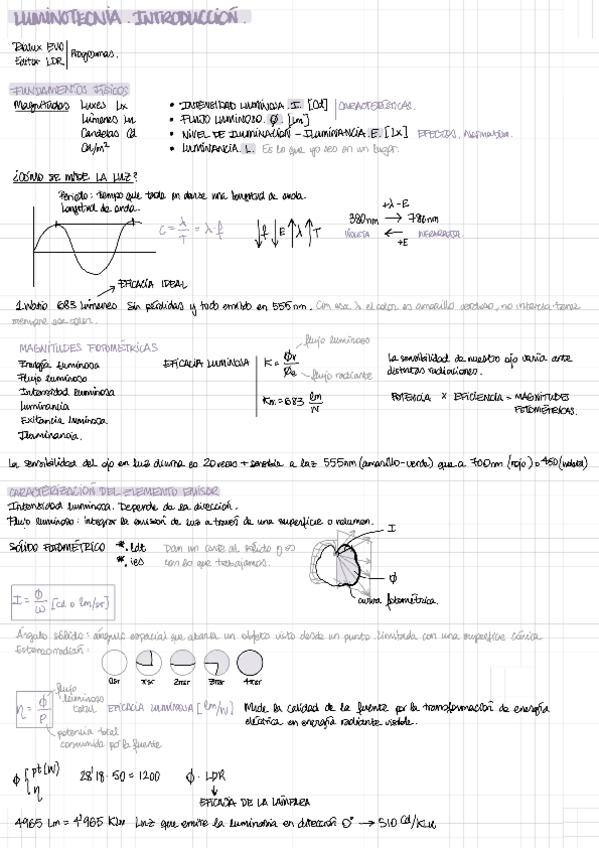 LUMINOTECNIA. INTRODUCCIÓN.
Dialux EVO
Editor LDR
Programas.
FUNDAMENTOS FÍSICOS
Magnitudes Luxes Lx
Lúmenes Lm
Candelas Cd
Cd/m²
• INTENSIDAD LUMINOSA. I. [Cd] CARACTERÍSTICAS.
• FLUJO LUMINOSO. ϕ. [Lm]
• NIVEL DE ILUMINACIÓN - ILUMINANCIA. E. [Lx] EFECTOS, Normativa.
• LUMINANCIA. L. Es lo que yo veo en un lugar.
¿CÓMO SE MIDE LA LUZ?
Período: tiempo que tarda en darse una longitud de onda.
Longitud de onda.
C = λ/T = λ·f
↓f ↓E ↑λ ↑T
+λ-E
380nm → 780nm
VIOLETA ← INFRARROJA.
+E
EFICACIA IDEAL
1 Watio 683 lúmenes Sin pérdidas y todo emitido en 555nm. Con esa λ el color es amarillo verdoso, no interesa tener
siempre ese color.
MAGNITUDES FOTOMÉTRICAS
Energía luminosa
Flujo luminoso
Intensidad luminosa
Luminancia
Exitancia luminosa
Iluminancia.
EFICACIA LUMINOSA
K = ϕv/ϕe
flujo luminoso
flujo radiante
Km = 683 lm/W
La sensibilidad de nuestro ojo varía ante
distintas radiaciones.
POTENCIA × EFICIENCIA = MAGNITUDES
FOTOMÉTRICAS.
La sensibilidad del ojo en luz diurna es 20 veces + sensible a la λ 555nm (amarillo-verde) que a 700nm (rojo) o 450 (violeta)
CARACTERIZACIÓN DEL ELEMENTO EMISOR
Intensidad luminosa. Depende de la dirección.
Flujo luminoso: integrar la emisión de luz a través de una superficie o volumen.
SÓLIDO FOTOMÉTRICO *.ldt
*.ies
Dan un corte al sólido y es
con lo que trabajamos.
I
ϕ
curva fotométrica.
I = ϕ/ω [cd o lm/sr]
Ángulo sólido: ángulo espacial que abarca un objeto visto desde un punto. Limitada con una superficie cónica
Estereorradián:
0sr πsr 2πsr 3πsr 4πsr
η = ϕ/P
flujo
luminoso
total
EFICACIA LUMINOSA [lm/W]
Mide la calidad de la fuente por la transformación de energía
eléctrica en energía radiante visible.
potencia total
consumida por la fuente
ϕ { pt(W)
η
28'18 · 50 = 1200
ϕ · LDR
EFICACIA DE LA LÁMPARA
4965 Lm = 4'965 KLm Luz que emite la luminaria en dirección 0° → 510 Cd/KLm